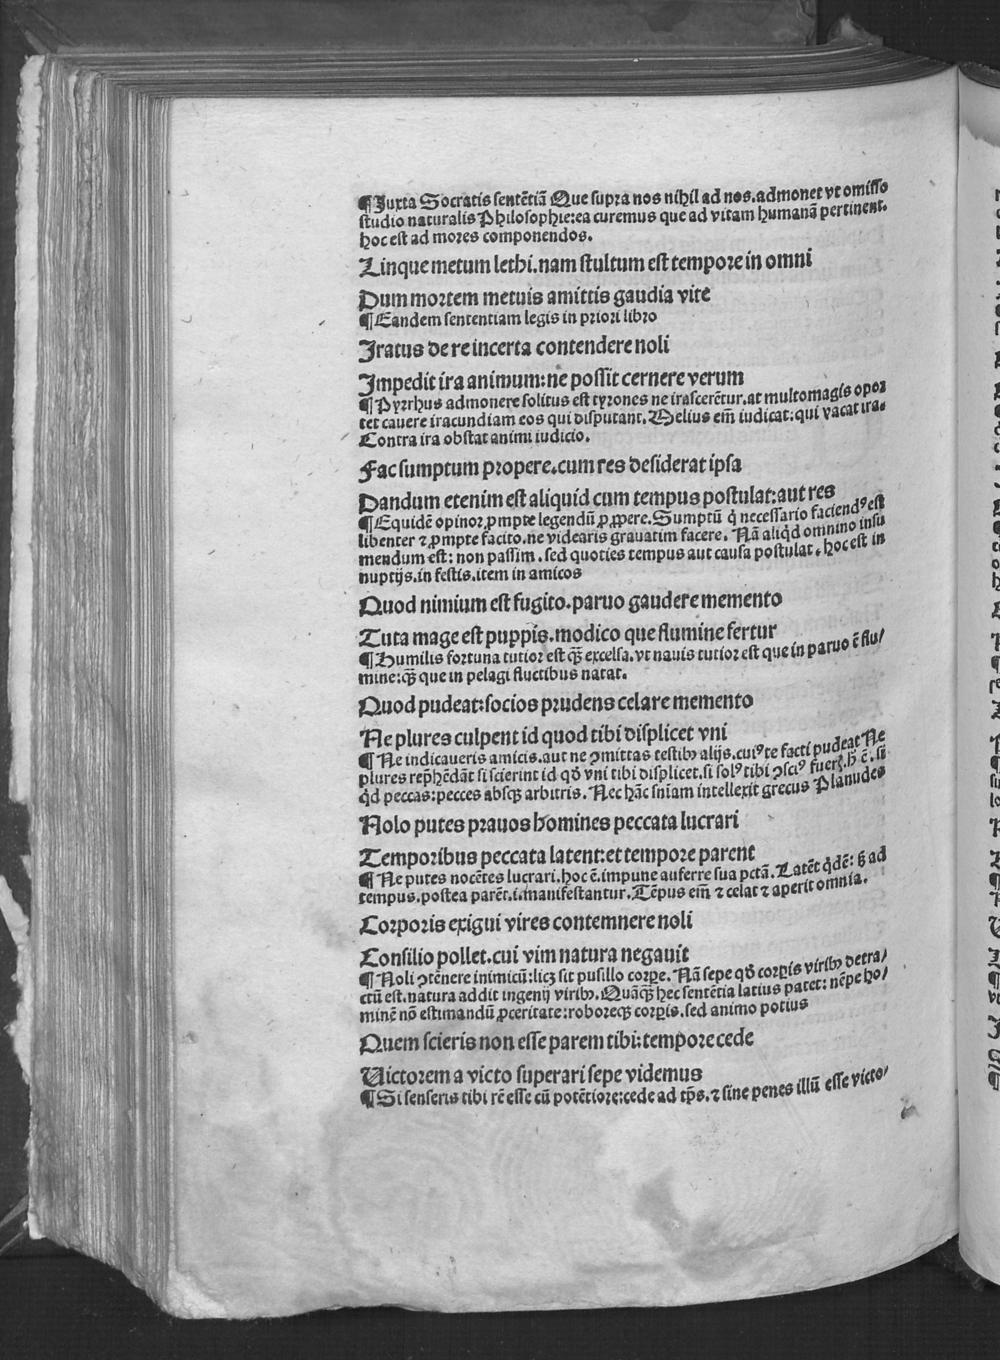 ¶Juxta Socratis sentētiā Que supra nos nihil ad nos.admonet vt omisso
studio naturalis Philosophie:ea curemus que ad vitam humanā pertinent.
hoc est ad mores componendos.
Linque metum lethi.nam stultum est tempore in omni
Dum mortem metuis amittis gaudia vite
¶Eandem sententiam legis in priori libro
Iratus de re incerta contendere noli
Impedit ira animum:ne possit cernere verum
¶Pyrrhus admonere solitus est tyrones ne irascerētur.at multomagis opor
tet cauere iracundiam eos qui disputant.Melius em̄ iudicat:qui vacat ira.
Contra ira obstat animi iudicio.
Fac sumptum propere.cum res desiderat ipsa
Dandum etenim est aliquid cum tempus postulat:aut res
¶Equidē opinor ꝓmpte legendū ꝓ ꝓpere.Sumptū q̇ necessario faciendꝰ est
libenter ⁊ ꝓmpte facito.ne videaris grauatim facere. Nā aliq̇d omnino insu
mendum est: non passim.sed quoties tempus aut causa postulat.hoc est in
nuptijs.in festis.item in amicos
Quod nimium est fugito.paruo gaudere memento
Tuta mage est puppis.modico que flumine fertur
¶Humilis fortuna tutior est qꝫ̄ excelsa.vt nauis tutior est que in paruo ē flu/
mine:qꝫ̄ que in pelagi fluctibus natat.
Quod pudeat:socios prudens celare memento
Ne plures culpent id quod tibi displicet vni
¶Ne indicaueris amicis.aut ne ꝯmittas testibꝰ alijs.cuiꝰ te facti pudeat Ne
plures rep̄hēdāt si scierint id qḋ vni tibi displicet.si solꝰ tibi ꝯsciꝰ fuerꝭ.h̄ ē.si
q̇d peccas:pecces absqꝫ arbitris. Nec hāc sniam intellexit grecus Planudes
Nolo putes prauos homines peccata lucrari
Temporibus peccata latent:et tempore parent
¶Ne putes nocētes lucrari.hoc ē.impune auferre sua pctā.Latēt q̇dē: ꝫ ad
tempus.postea parēt.i.manifestantur.Tēpus em̄ ⁊ celat ⁊ aperit omnia.
Corporis exigui vires contemnere noli
Consilio pollet.cui vim natura negauit
¶Noli ꝯtēnere inimicū:licꝫ sit pusillo corꝑe. Nā sepe qḋ corꝑis viribꝰ detra/
ctū est.natura addit ingenij viribꝰ.Quāqꝫ̄ hec sentētia latius patet: nēpe ho/
minē nō estimandū ꝓceritate:roboreqꝫ corꝑis.sed animo potius
Quem scieris non esse parem tibi:tempore cede
Victorem a victo superari sepe videmus
¶Si senseris tibi rē esse cū potētiore:cede ad tp̄s.⁊ sine penes illū esse victo/